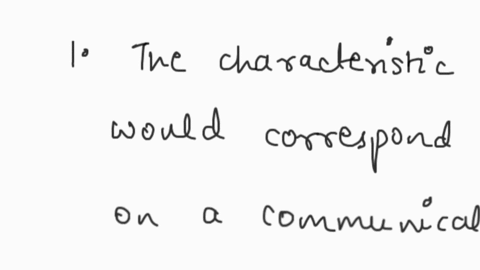 1. The characteristic
would correspond
on a communical